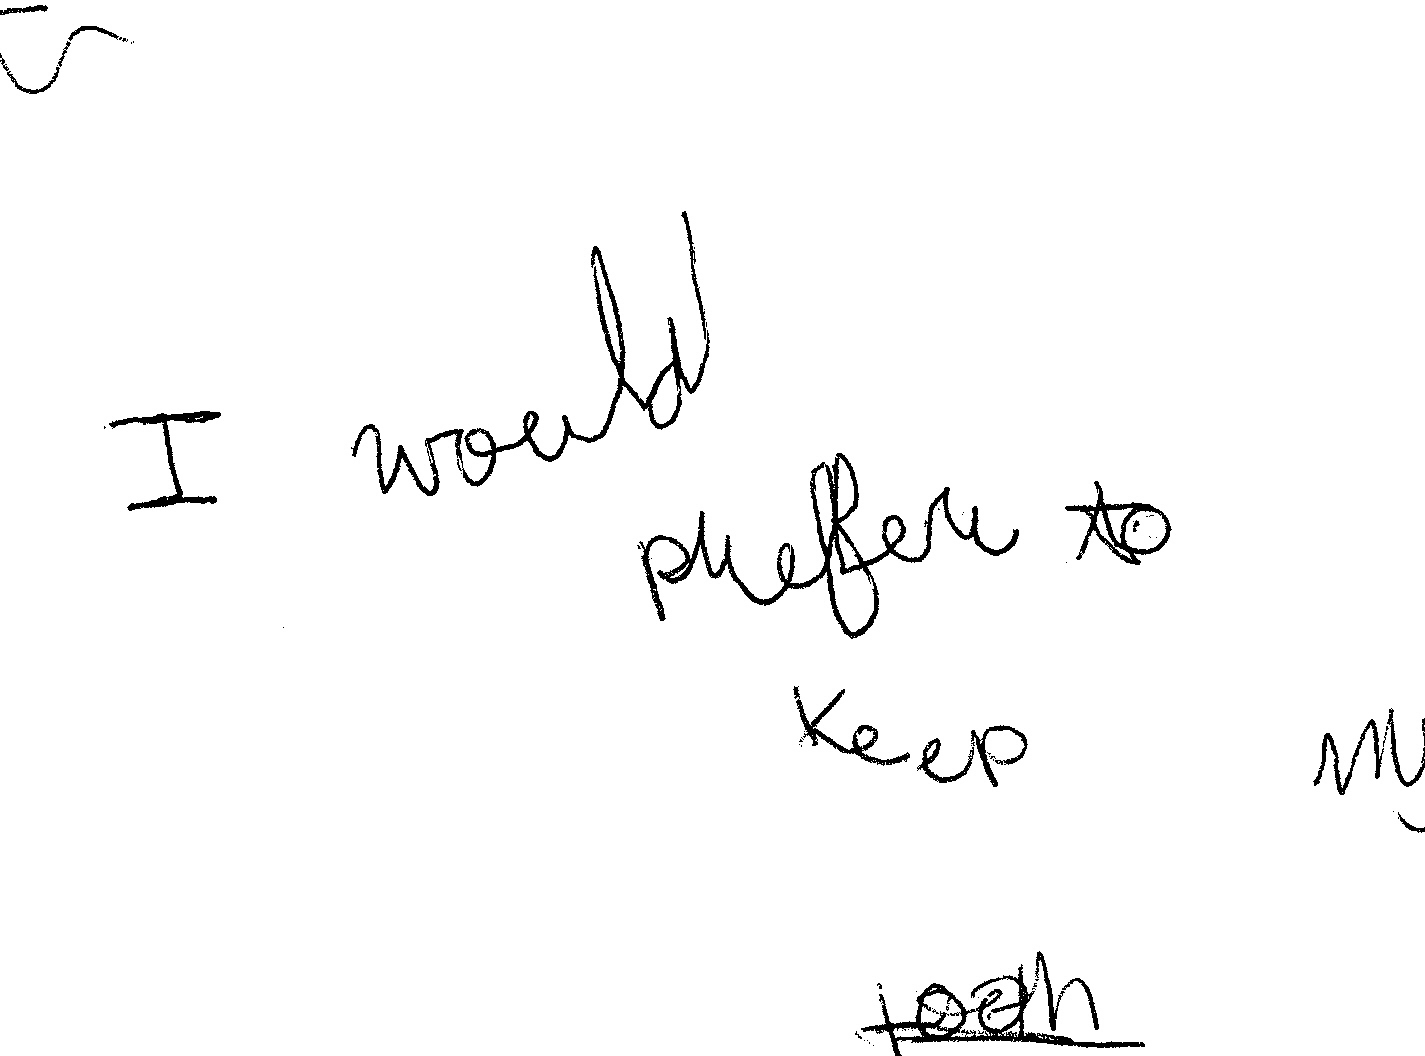 I would
prefer to
keep my